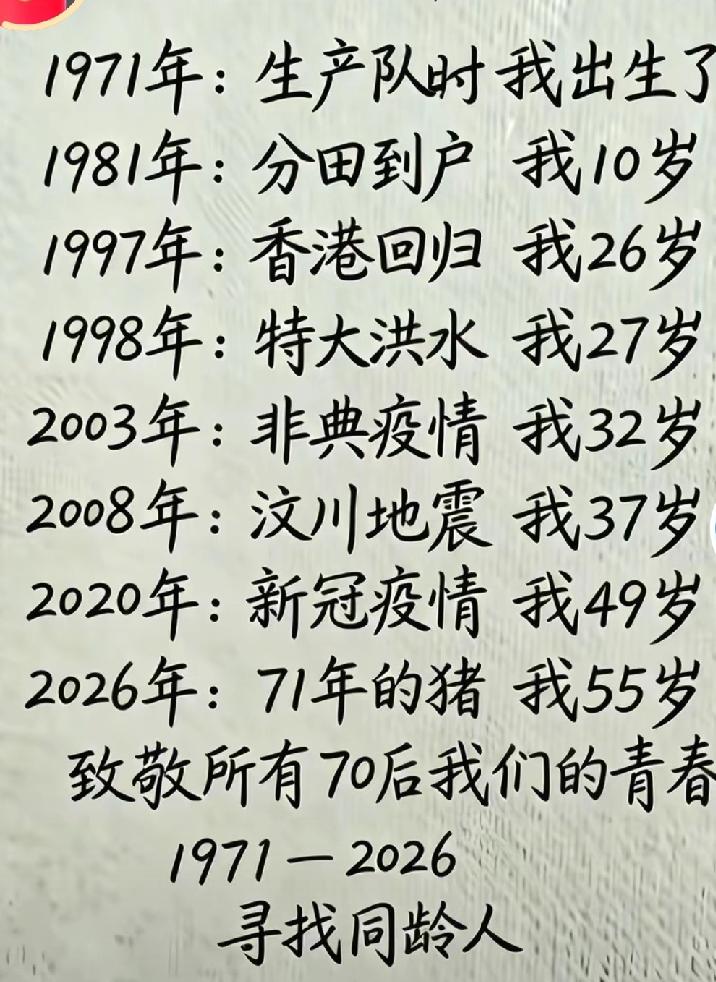 1971年：生产队时 我出生了
1981年：分田到户 我10岁
1997年：香港回归 我26岁
1998年：特大洪水 我27岁
2003年：非典疫情 我32岁
2008年：汶川地震 我37岁
2020年：新冠疫情 我49岁
2026年：71年的猪 我55岁
致敬所有70后我们的青春
1971—2026
寻找同龄人